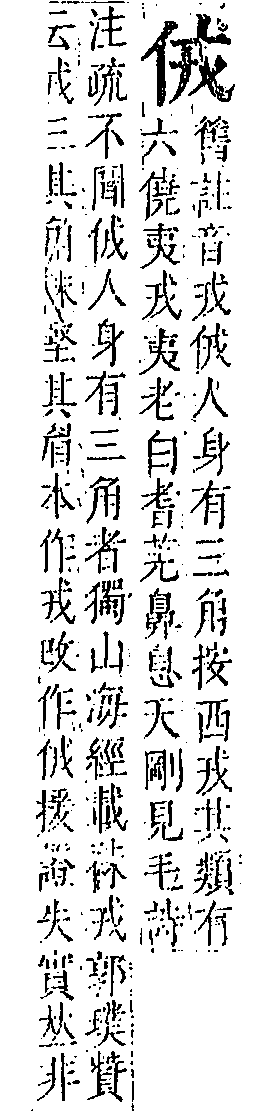 ⿰亻戎
舊註音戎⿰亻戎人身有三角按西戎其類有
六僥夷戎夷老白耆羌鼻息天剛見毛詩
注疏不聞⿰亻戎人身有三角者獨山海經載戎郭璞贊
云戎三其角豎其眉本作戎改作⿰亻戎援證失實𠀤非